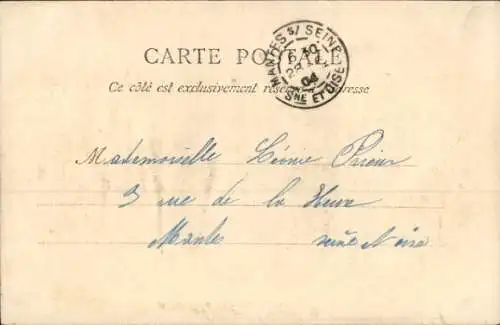 CARTE POSTALE
Ce côté est exclusivement réservé à l'adresse
MANTES S/ SEINE
SNE ET OISE
04
Mademoiselle Léonie Prieur
3 rue de la Heuse
Mantes Seine & Oise